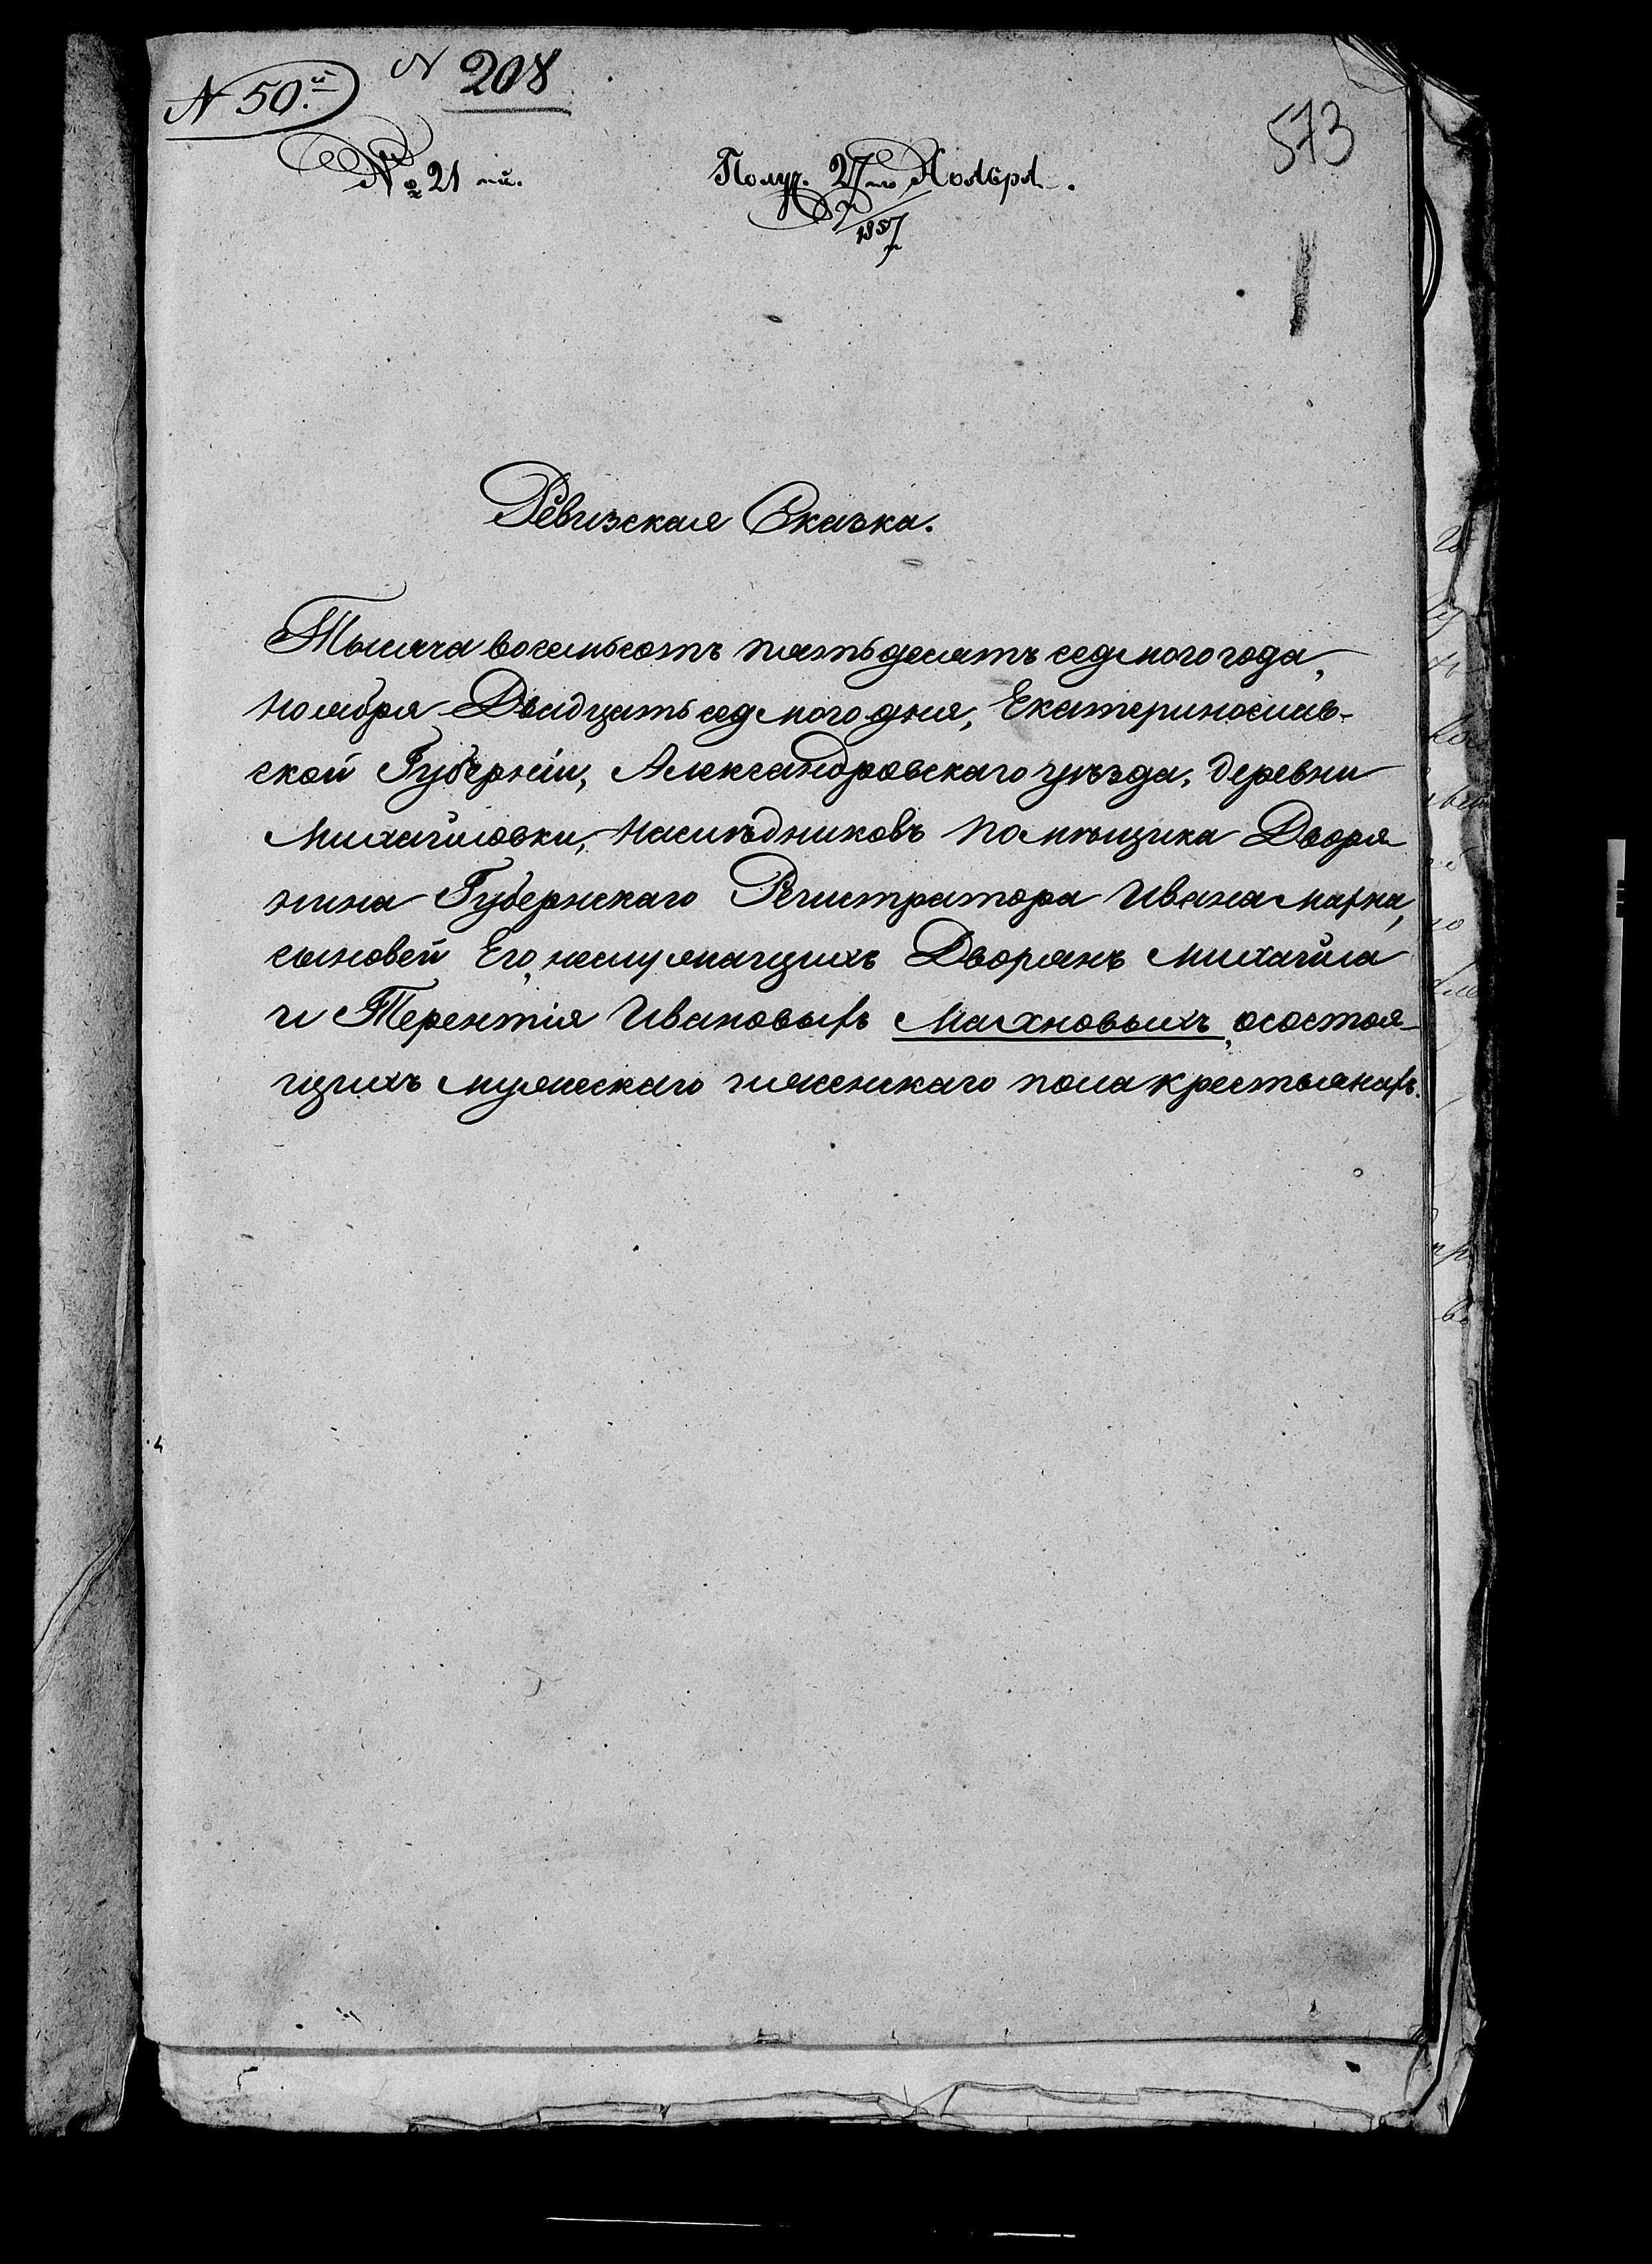 N 50.й
N 208
573
№ 21 -й.
Получ. 27го Ноября.
1857
Ревизская Сказка.
Тысяча восемьсотъ пятьдесятъ седмого года,
Ноября Двадцать седмого дня, Екатеринослав-
ской Губерніи, Александровскаго уѣзда, деревни
Михайловки, Наслѣдниковъ помѣщика Дворя
нина Губернскаго Регистратора Ивана Махна,
сыновей Его, неслужащихъ Дворянъ Михайла
и Терентія Ивановыхъ Махновыхъ, осостоя-
щихъ мужескаго и женскаго пола крестьянахъ.